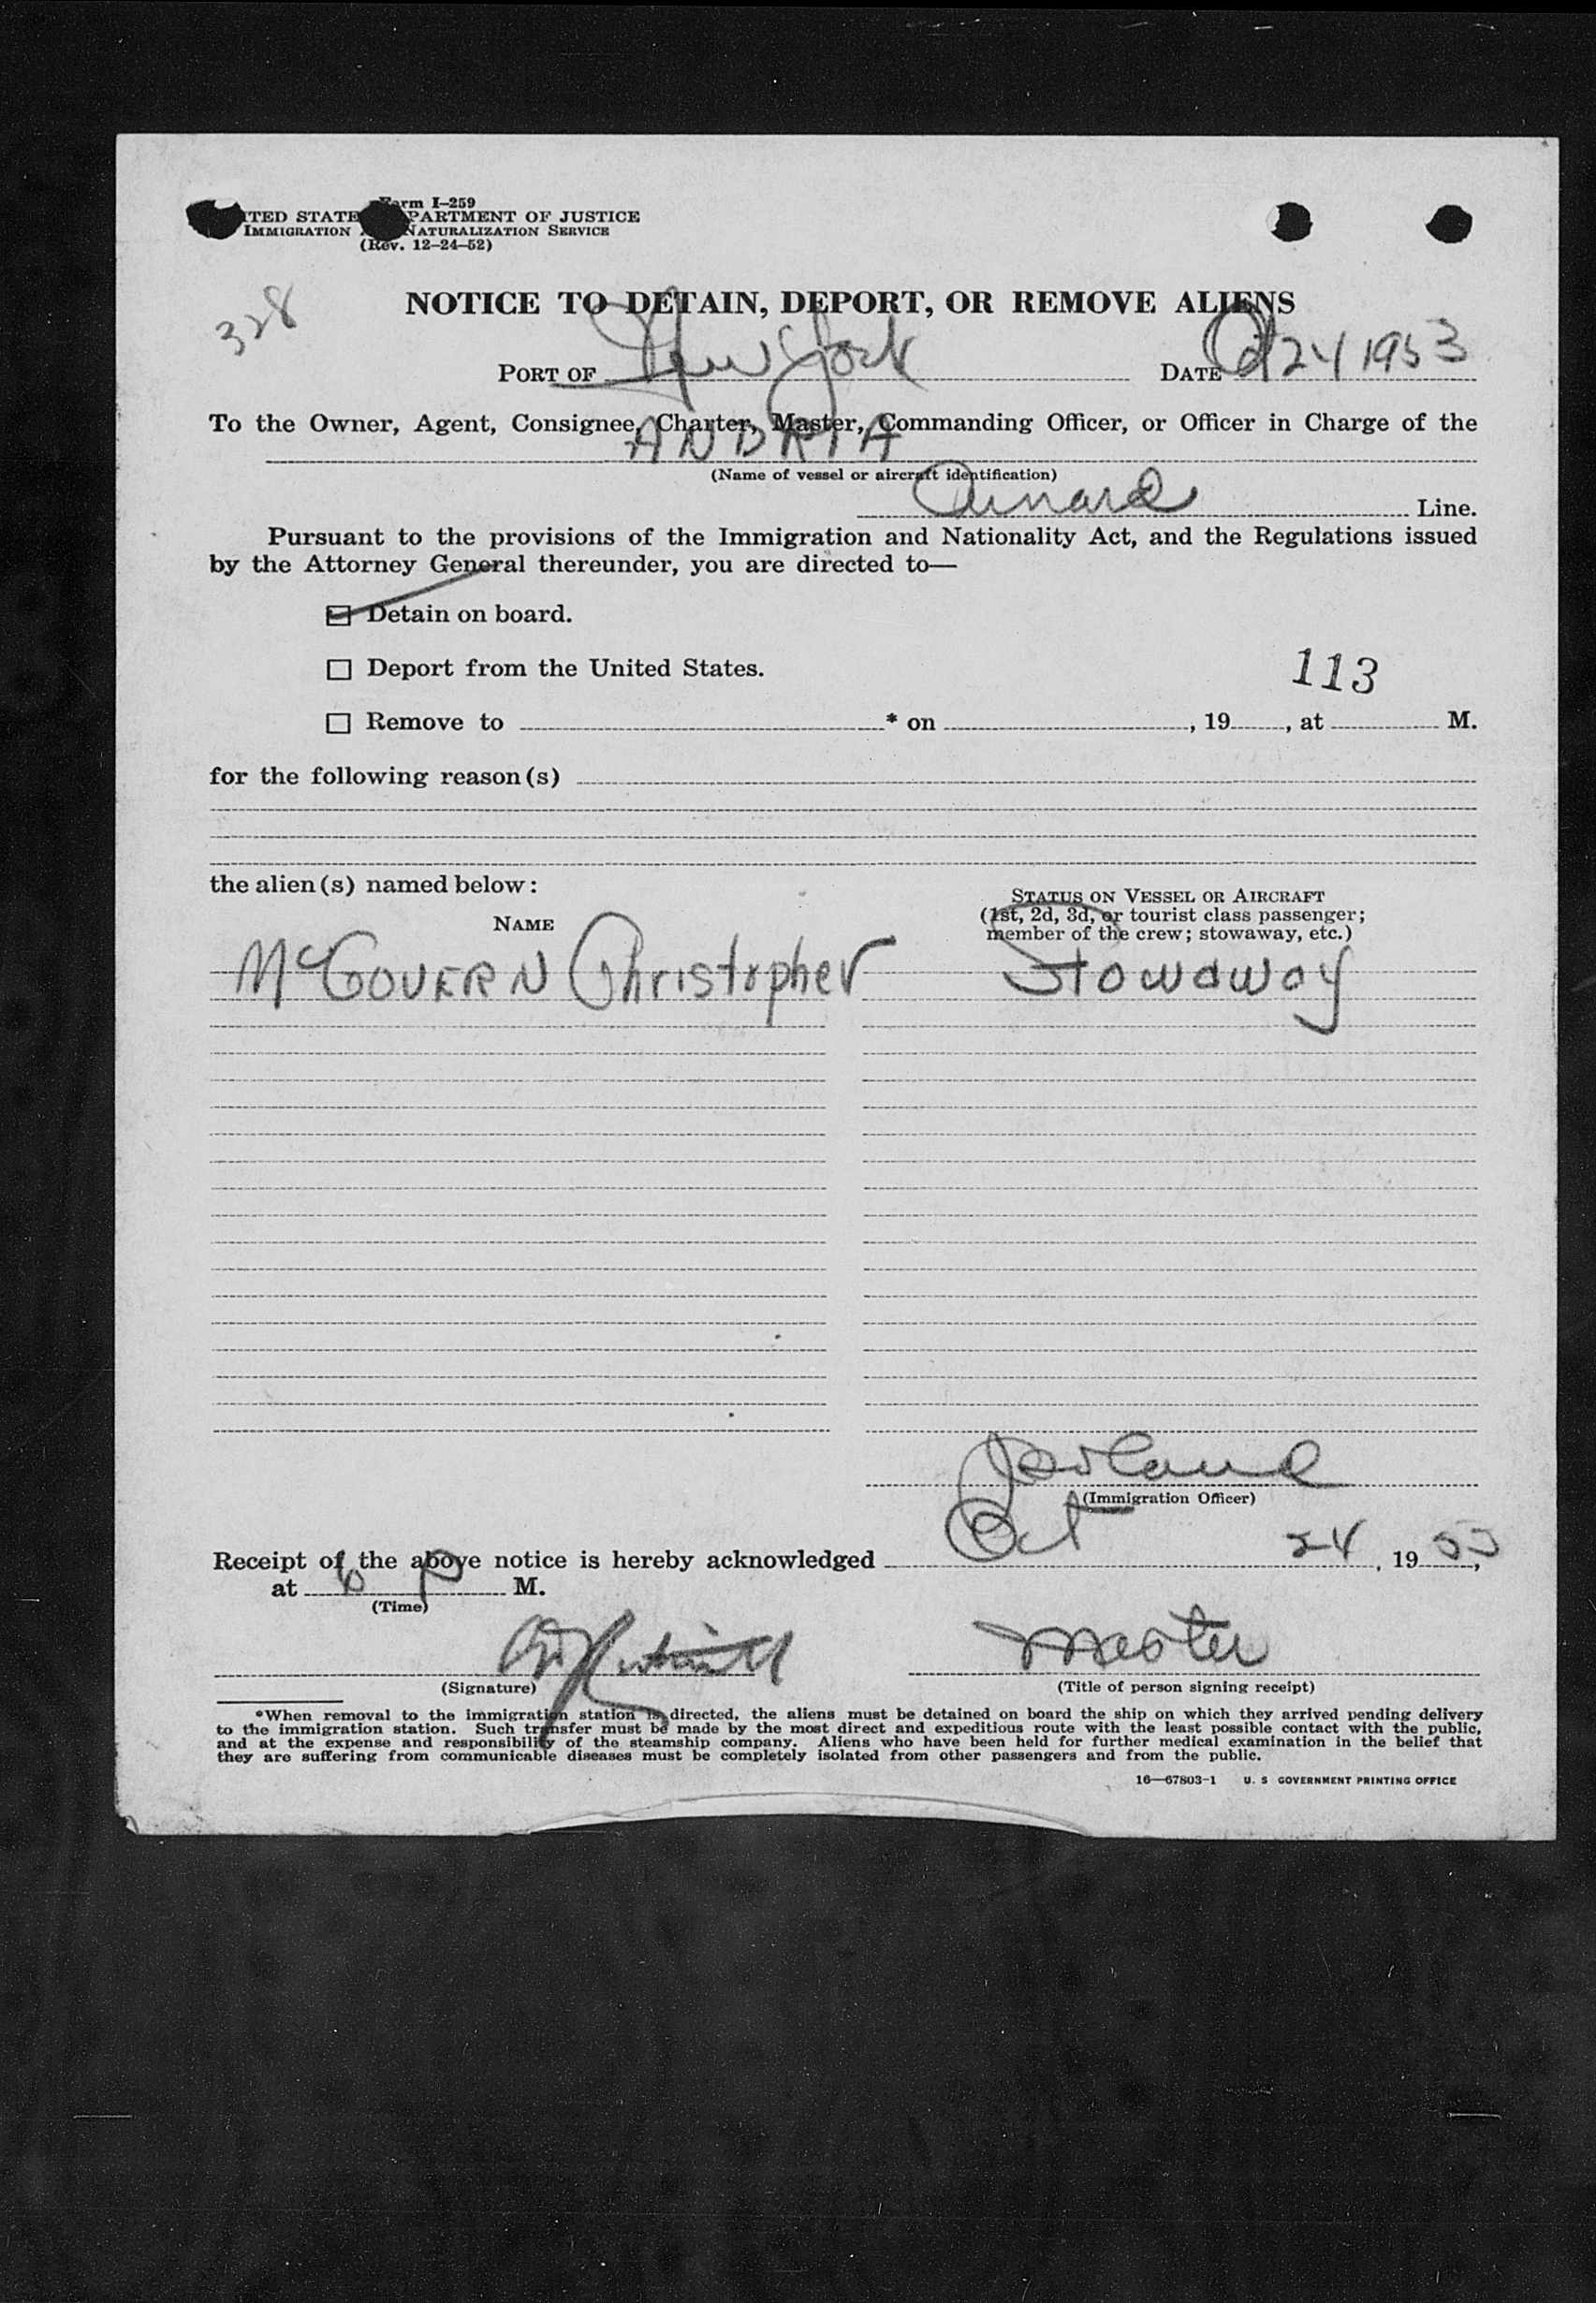 Form I-259
UNITED STATES DEPARTMENT OF JUSTICE
IMMIGRATION AND NATURALIZATION SERVICE
(Rev. 12-24-52)
328
NOTICE TO DETAIN, DEPORT, OR REMOVE ALIENS
PORT OF New York DATE Oct 24 1953
To the Owner, Agent, Consignee, Charter, Master, Commanding Officer, or Officer in Charge of the
ANDRIA
(Name of vessel or aircraft identification)
Cunard Line.
Pursuant to the provisions of the Immigration and Nationality Act, and the Regulations issued
by the Attorney General thereunder, you are directed to—
Detain on board.
Deport from the United States.
113
Remove to * on , 19 , at M.
for the following reason(s)
the alien(s) named below:
STATUS ON VESSEL OR AIRCRAFT
(1st, 2d, 3d, or tourist class passenger;
member of the crew; stowaway, etc.)
NAME
McGOVERN Christopher Stowaway
(Immigration Officer)
Receipt of the above notice is hereby acknowledged Oct 24, 1953,
at 6 P M.
(Time)
Master
(Signature) (Title of person signing receipt)
*When removal to the immigration station is directed, the aliens must be detained on board the ship on which they arrived pending delivery
to the immigration station. Such transfer must be made by the most direct and expeditious route with the least possible contact with the public,
and at the expense and responsibility of the steamship company. Aliens who have been held for further medical examination in the belief that
they are suffering from communicable diseases must be completely isolated from other passengers and from the public.
16—67803-1 U. S GOVERNMENT PRINTING OFFICE